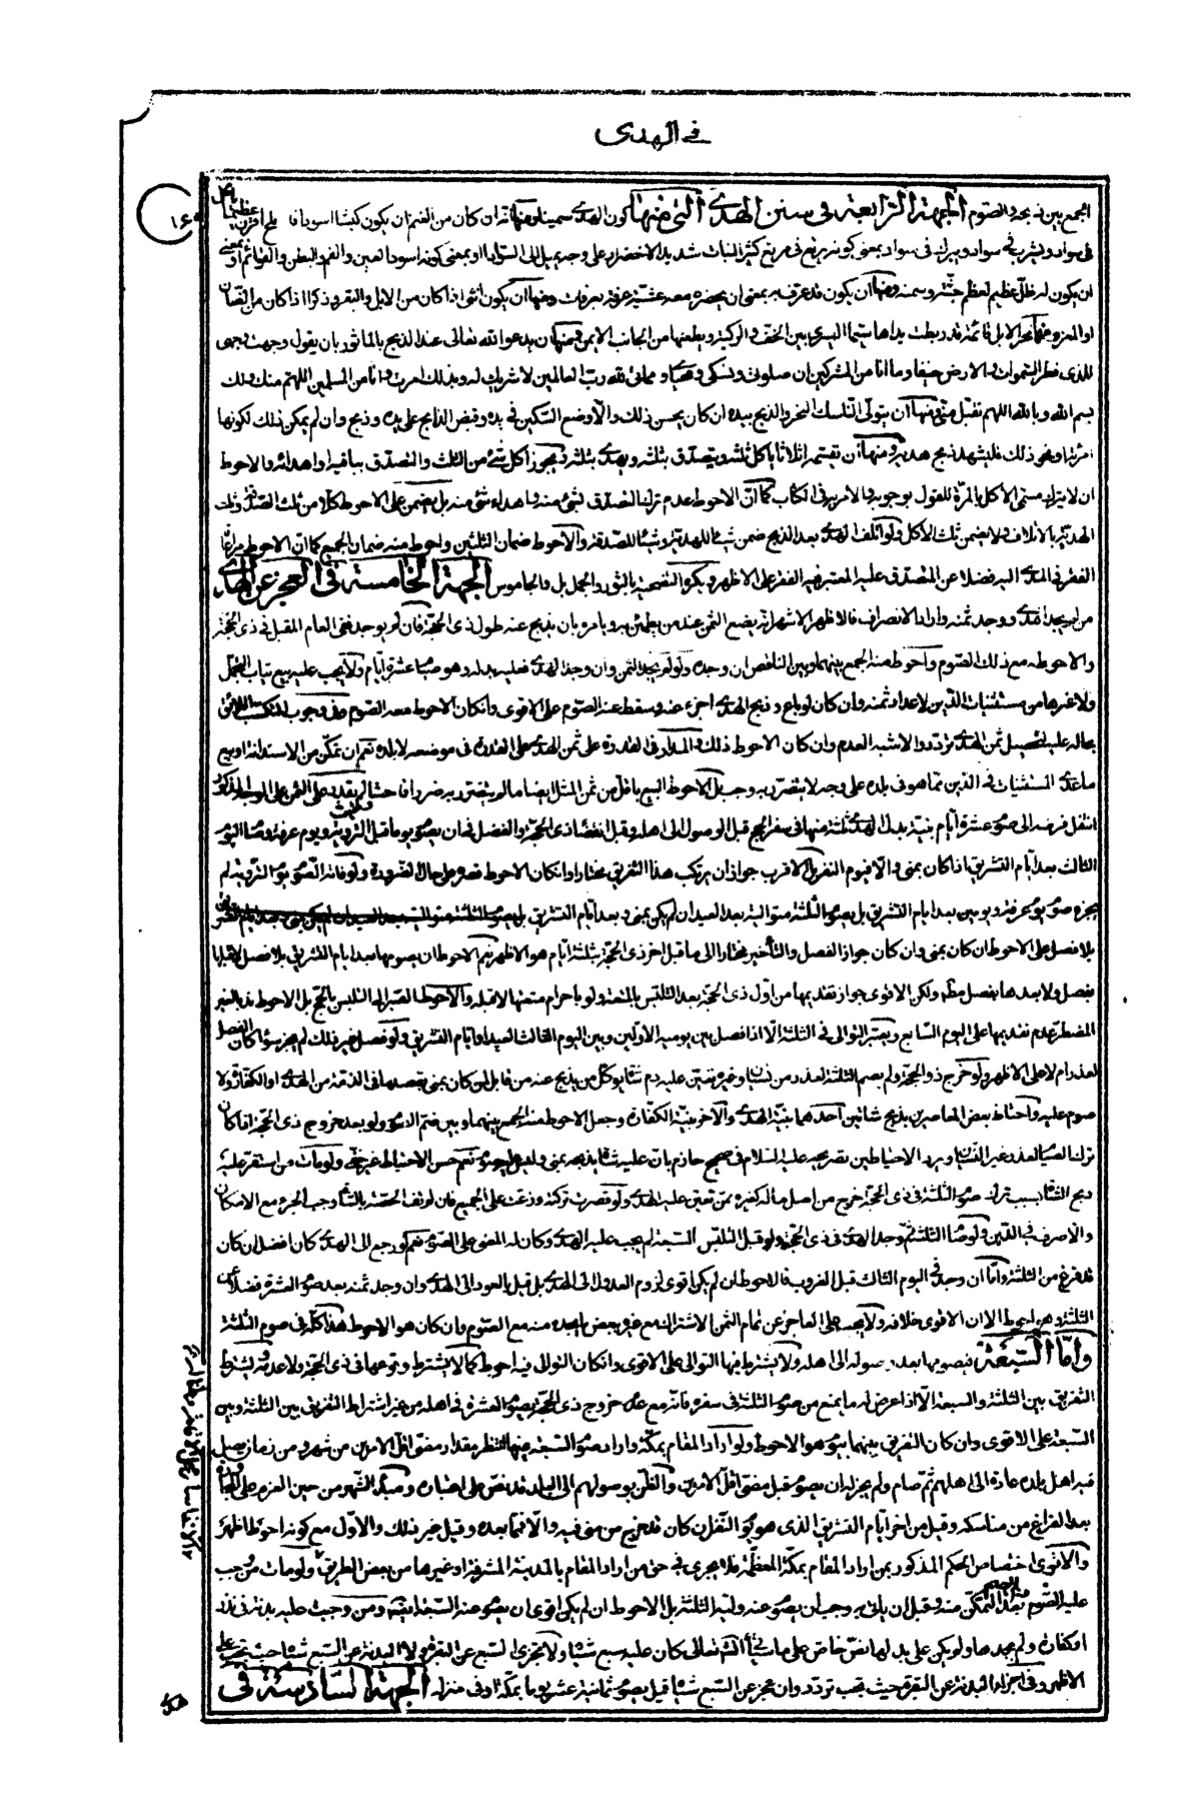 في الهدى
الجمع بين ذبحه والصوم الجهة الرابعة في سنن الهدى التي منها كون الهدى سمينا ومنها انه ان كان من الغنم ان يكون كبشا اسود املح اقرن عظيما ياكل
في سواد ويشرب في سواد ويبرك في سواد بمعنى كونه يرتع في مرتع كثير النبات شديد الاخضرار على وجه يميل الى السواد او بمعنى كونه اسود العين والفم والبطن والقوائم او بمعنى
ان يكون له ظل عظيم لعظم جثته وسمنه ومنها ان يكون قد عرف به بمعنى ان يحضره معه عشية عرفة بعرفات ومنها ان يكون انثى اذا كان من الابل والبقر وذكرا اذا كان من الضان
او المعز ومنها نحر الابل قائمة قد ربطت يداها سيما اليسرى بين الخف والركبة ويطعنها من الجانب الايمن ومنها ان يدعو الله تعالى عند الذبح بالماثور بان يقول وجهت وجهى
للذى فطر السموات والارض حنيفا وما انا من المشركين ان صلوتى ونسكى ومحياى ومماتى لله رب العالمين لا شريك له وبذلك امرت وانا من المسلمين اللهم منك ولك
بسم الله وبالله اللهم تقبل منى ومنها ان يتولى الناسك النحر والذبح بيده ان كان يحسن ذلك والا وضع السكين في يده وقبض الذابح على يده وذبح وان لم يمكن ذلك لكونها
امرئة او نحو ذلك فليشهد ذبح هديه ومنها ان يقسمه اثلاثا ياكل ثلثه ويتصدق بثلثه ويهدى بثلثه ويجوز اكل شئ من الثلث والتصدق بباقيه او اهدائه والاحوط
ان لا يترك مسمى الاكل بالمرة للقول بوجوبه والامر به في الكتاب كما ان الاحوط عدم ترك التصدق بشئ منه واهداء شئ منه بل يضمن على الاحوط كلا من ثلث الصدقة وثلث
الهدية بالاتلاف ولا يضمن ثلث الاكل ولو اتلف الهدى بعد الذبح ضمن شيئا للهدية وشيئا للصدقة والاحوط ضمان الثلثين واحوط منه ضمان الجميع كما ان الاحوط مراعاة
الفقر في المهدى اليه فضلا عن المتصدق عليه المعتبر فيه الفقر على الاظهر ويكره التضحية بالثور والجمل بل والجاموس الجهة الخامسة في العجز عن الهدى
من لم يجد الهدى ووجد ثمنه واراد الانصراف فالاظهر الاشهر انه يضع الثمن عند من يطمئن به ويامره بان يذبح عنه طول ذى الحجة فان لم يوجد ففى العام المقبل في ذى الحجة
والاحوط مع ذلك الصوم واحوط منه الجمع بينهما وبين الناقص ان وجده ولو لم يجد الثمن وان وجد الهدى فعليه بدله وهو صيام عشرة ايام ولا يجب عليه بيع ثياب التجمل
ولا غيرها من مستثنيات الدين لاعداد ثمنه وان كان لو باع وذبح الهدى اجزء عنه وسقط عنه الصوم على الاقوى وان كان الاحوط معه الصوم وفى وجوب التكسب اللائق
بحاله عليه لتحصيل ثمن الهدى تردد والاشبه العدم وان كان الاحوط ذلك والمدار في القدرة على ثمن الهدى على القدرة في موضعه لا بلده نعم ان تمكن من الاستدانة او بيع
ماعدى المستثنيات في الدين مما هو في بلده على وجه لا يتضرر به وجب بل الاحوط البيع باقل من ثمن المثل ايضا ما لم يتضرر به ضررا فاحشا
انتقل فرضه الى صوم عشرة ايام بنية بدل الهدى ثلثة منها في سفر الحج قبل الوصول الى اهله وقبل انقضاء ذى الحجة والافضل في ان يصوم يوما قبل التروية ويوم عرفة وصام اليوم
الثالث بعد ايام التشريق اذا كان بمنى والا فيوم النفر بل الاقرب جواز ان يرتكب هذا التفريق مختارا وان كان الاحوط قصره على حال الضرورة ولو فاته الصوم يوم التروية لم
يجزه صوم يوم عرفة ويومين بعد ايام التشريق بل يصوم الثلثة متوالية بعد العيد ان لم يكن بمنى وبعد ايام التشريق
بلا فصل على الاحوط ان كان بمنى وان كان جواز الفصل والتاخير مختارا الى ما قبل اخر ذى الحجة بثلثة ايام هو الاظهر نعم الاحوط ان يصومها بعد ايام التشريق بلا فصل لا قبلها
بفصل ولا بعدها بفصل مطلقا ولكن الاقوى جواز تقديمها من اول ذى الحجة بعد التلبس بالمتعة ولو باحرام متعتها لا قبله والاحوط الصبر الى التلبس بالحج بل الاحوط ندبا لغير
المضطر عدم تقديمها على اليوم السابع ويعتبر التوالى في الثلثة الا اذا فصل بين يوميه الاولين وبين اليوم الثالث العيد او ايام التشريق ولو فصل غير ذلك لم يجز سواء كان الفصل
لعذر ام لا على الاظهر ولو خرج ذو الحجة ولم يصم الثلثة لعذر من نسيان وغيره تعين عليه دم شاة ولو كل من يذبح عنه من قابل ان كان بمنى بقصد ما في الذمة من الهدى او الكفارة ولا
صوم عليه واحتاط بعض المعاصرين بذبح شاتين احدهما بنية الهدى والاخر بنية الكفارة وجعل الاحوط منه الجمع بينهما وبين ضم الصوم ولو بعد خروج ذى الحجة اذا كان
ترك الصيام لعذر غير النسيان ويرد الاحتياطين تصريحه عليه السلام في صحيح حازم بان عليه شاة يذبحه بمنى وليس عليه صوم نعم حسن الاحتياط غير خفى ولو مات من استقر عليه
ذبح الشاة بسبب ترك صوم الثلثة في ذى الحجة خرج من اصل ماله كغيره ممن تعين عليه الهدى ولو قصرت تركته وزعت على الجميع فان لم تف الحصة بالشاة وجب الجزء مع الامكان
والا صرف في الدين ولو صام الثلثة ثم وجد الهدى في ذى الحجة ولو قبل التلبس بالسبعة لم يجب عليه الهدى وكان له المضى على الصوم نعم لو رجع الى الهدى كان افضل ان كان
قد فرغ من الثلثة واما ان وجد في اليوم الثالث قبل الغروب فالاحوط ان لم يكن اقوى لزوم العدول الى الهدى بل قيل بالعود الى الهدى وان وجد ثمنه بعد صوم العشرة فضلا عن
الثلثة وهو احوط الا ان الاقوى خلافه ولا يجب على العاجز عن تمام الثمن الاشتراك مع غيره ببعض ما يجده منه مع الصوم وان كان هو الاحوط هذا كله في صوم الثلثة
واما السبعة فيصومها بعد وصوله الى اهله ولا يشترط فيها التوالى على الاقوى وان كان التوالى فيه احوط كما لا يشترط وقوعها في ذى الحجة ولا عدمه ويشترط
التفريق بين الثلثة والسبعة الا اذا عرض له ما يمنع من صوم الثلثة في سفره فانه مع عدم خروج ذى الحجة يصوم العشرة في اهله من غير اشتراط التفريق بين الثلثة وبين
السبعة على الاقوى وان كان التفريق بينهما بيوم هو الاحوط ولو اراد المقام بمكة واراد صوم السبعة فيها انتظر مقدار مضى اقل الامرين من شهر ومن زمان يصل
فيه اهل بلده عادة الى اهلهم ثم صام ولم يجز له ان يصوم قبل مضى اقل الامرين والظن بوصولهم الى البلد قد نص على اعتباره ومبدء الشهر من حين العزم على المجاورة
بعد الفراغ من مناسكه وقيل من اخر ايام التشريق الذى هو يوم النفر ان كان قد خرج من منى فيه والا فما بعده وقيل غير ذلك والاول مع كونه احوط اظهر
والاقوى اختصاص الحكم المذكور بمن اراد المقام بمكة المعظمة فلا يجرى في حق من اراد المقام بالمدينة المشرفة او غيرها من بعض الطريق ولو مات من وجب
عليه الصوم بعد التمكن منه وقبل ان ياتى به وجب ان يصوم عنه وليه الثلثة بل الاحوط ان لم يكن اقوى ان يصوم عنه السبعة ايضا ومن وجبت عليه بدنة في نذر
او كفارة ولم يجدها ولم يكن على بدلها نص خاص على ما سياتى انشاء الله تعالى كان عليه سبع شياه ولا يجزى السبع عن البقرة ولا البدنة عن السبع شياه حيث تجب على
الاظهر وفى اجزاء البدنة عن البقرة حيث تجب تردد وان عجز عن السبع شياه قيل يصوم ثمانية عشر يوما بمكة او في منزله الجهة السادسة في